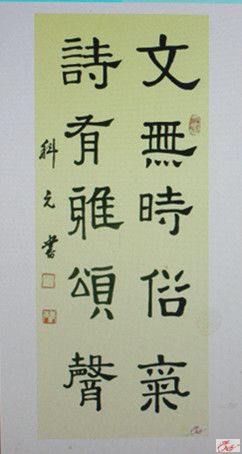 文無時俗氣
詩有雅頌聲
科元書